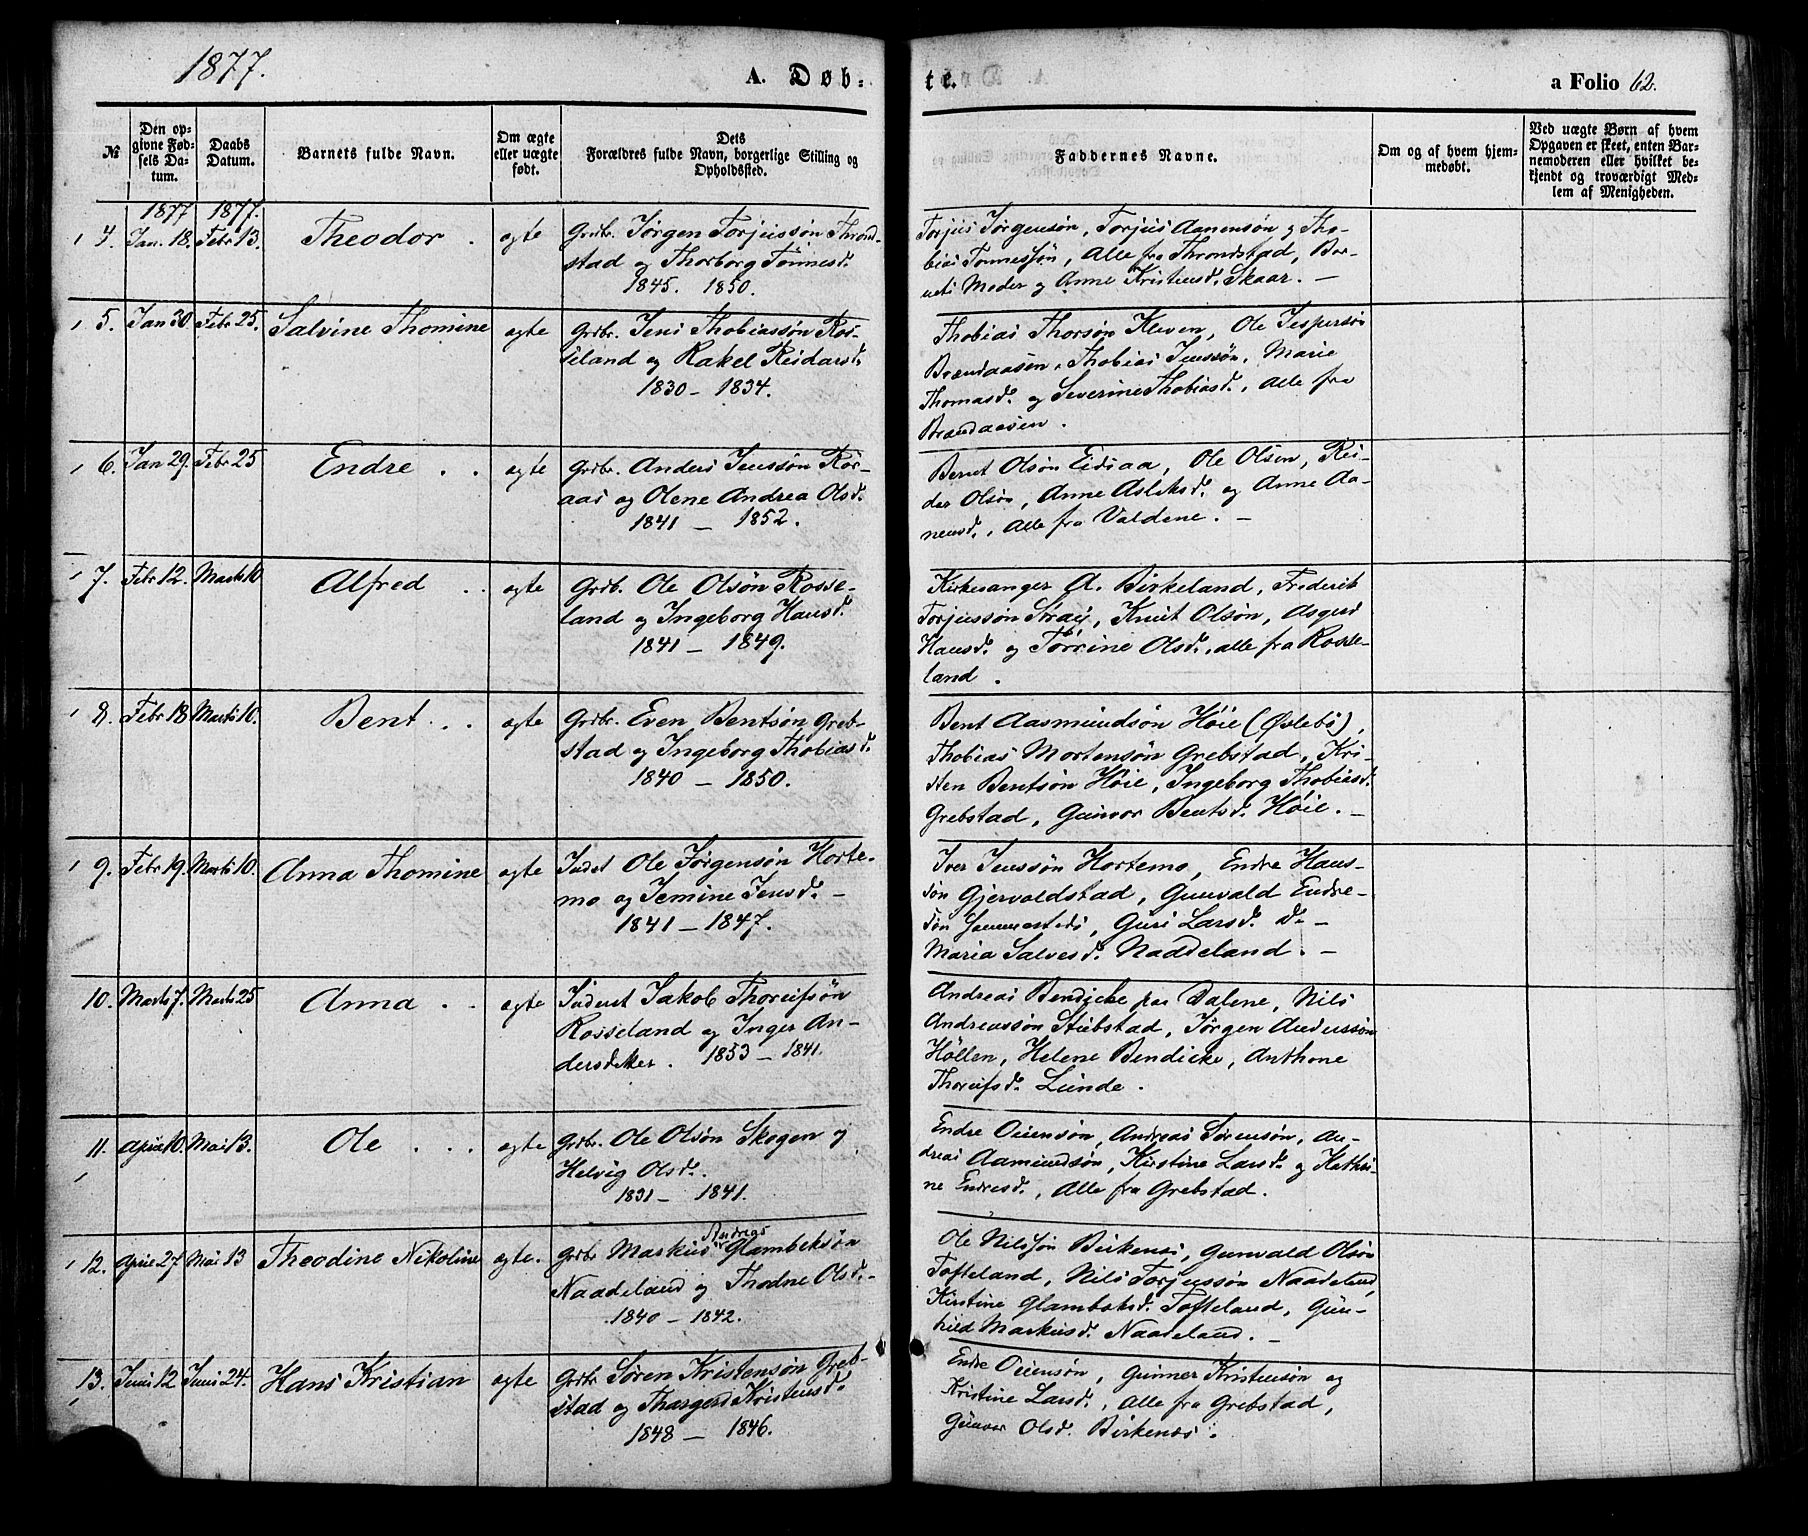 1877.
A. Døb-
te.
a Folio 62.
№
Den op-
givne Fød-
sels Da-
tum.
Daabs
Datum.
Barnets fulde Navn.
Om ægte
eller uægte
født.
Dets
Forældres fulde Navn, borgerlige Stilling og
Opholdssted.
Faddernes Navne.
Om og af hvem hjem-
medøbt.
Ved uægte Børn af hvem
Opgaven er skeet, enten Bar-
nemoderen eller hvilket be-
kjendt og troværdigt Med-
lem af Menigheden.
1877 1877.
4. Jan. 18. Febr 13. Theodor. ægte
Grdbr. Jørgen Torjussøn Thrond-
stad og Thorborg Tønnesd.
1845. 1850.
Torjus Jørgensøn, Torjus Aanensøn og Tho-
bias Tønnessøn, Alle fra Throndstad, Bar-
nets Moder og Anne Kristensd. Skaar. —
5. Jan 30 Febr 25. Salvine Thomine ægte
Grdbr. Jens Thobiassøn Ros-
seland og Rakel Reidarsd.
1830 - 1834.
Thobias Thorsøn Kleven, Ole Jespersøn
Brandaasen, Thobias Jenssøn, Marie
Thomasd. og Severine Thobiasd., Alle fra
Brandaasen.
6. Jan 29. Febr 25 Endre . . ægte
Grdbr. Anders Jenssøn Rør-
aas og Olene Andrea Olsd.
1841 — 1852.
Bernt Olsøn Eidsaa, Ole Olsen, Rei-
dar Olsøn, Anne Aslaksd. og Anne Aa-
nensd., Alle fra Valdene. —
7. Febr 12. Marts 10 Alfred . . ægte
Grdb. Ole Olsøn Rosse-
land og Ingeborg Hansd.
1841 — 1849.
Kirkesanger A. Birkeland, Frederik
Torjussøn Straij, Knut Olsøn, Asgerd
Hansd. og Tørrine Olsd., alle fra Rosse-
land.
8. Febr 18 Marts 10. Bent . . ægte
Grdbr. Even Bentsøn Greb-
stad og Ingeborg Thobiasd.
1840 — 1850.
Bent Aasmundsøn Høie (Øslebø),
Thobias Mortensøn Grebstad, Kri-
sten Bentsøn Høie, Ingeborg Thobiasd.
Grebstad, Gunvor Bentsd. Høie. —
9. Febr 19. Marts 10. Anna Thomine ægte
Inderst Ole Jørgensøn Horte-
mo og Jemine Jensd. —
1841 — 1847.
Iver Jenssøn Hortemo, Endre Hans-
søn Gjervoldstad, Gunvald Endre-
søn, Guri Larsd. Do —
Maria Salvesd. Naadeland. —
10. Marts 7. Marts 25 Anna . . ægte
Inderst Jakob Thoreifsøn
Rosseland og Inger An-
dersdatter. 1853 — 1841.
Andreas Bendicke paa Dalene, Nils
Andreassøn Stubstad, Jørgen Anderssøn
Høllen, Helene Bendicke, Anthone
Thoreifsd. Lunde.
11. April 10. Mai 13. Ole . . . ægte
Grdbr. Ole Olsøn Skogen og
Helvig Olsd.
1831 — 1841.
Endre Oiensøn, Andreas Sørensøn, An-
dreas Aamundsøn, Kirstine Larsd. og Kathri-
ne Endresd., Alle fra Grebstad.
12. April 27 Mai 13 Theodine Nikoline ægte.
Andreas
Grdbr Markus Glambeksøn
Naadeland og Thodne Olsd. —
1840 — 1842.
Ole Nilssøn Birkenes, Gunvald Olsøn
Tofteland, Nils Torjussøn Naadeland,
Kirstine Glambeksd. Tofteland, Gun-
hild Markusd. Naadeland. —
13. Juni 12 Juni 24. Hans Kristian ægte
Grdbr Søren Kristensøn Greb-
stad og Thorgerd Kristensd.
1848 — 1846.
Endre Oiensøn, Gunner Kristensøn og
Kristine Larsd., Alle fra Grebstad,
Gunvor Olsd. Birkenes.